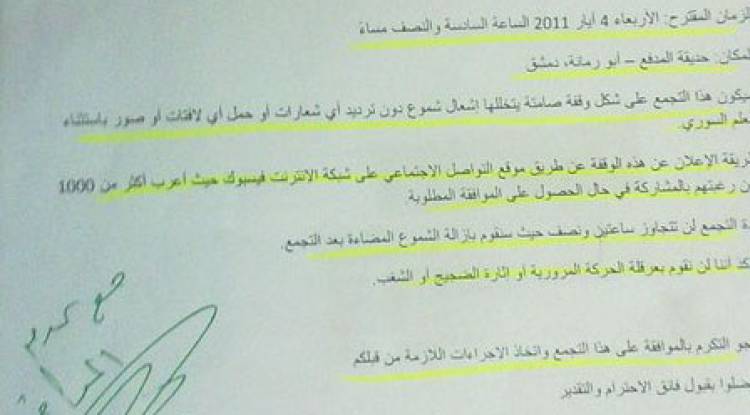 لزمان المقترح: الأربعاء 4 أيار 2011 الساعة السادسة والنصف مساءً
لمكان: حديقة المدفع – أبو رمانة، دمشق
سيكون هذا التجمع على شكل وقفة صامتة يتخللها إشعال شموع دون ترديد أي شعارات أو حمل أي لافتات أو صور باستثناء
علم السوري.
ريقة الإعلان عن هذه الوقفة عن طريق موقع التواصل الاجتماعي على شبكة الانترنت فيسبوك حيث أعرب أكثر من 1000
ن رغبتهم بالمشاركة في حال الحصول على الموافقة المطلوبة
ة التجمع لن تتجاوز ساعتين ونصف حيث سنقوم بازالة الشموع المضاءة بعد التجمع.
كد أننا لن نقوم بعرقلة الحركة المرورية أو اثارة الضجيج أو الشغب.
جو التكرم بالموافقة على هذا التجمع واتخاذ الاجراءات اللازمة من قبلكم
ضلوا بقبول فائق الاحترام والتقدير